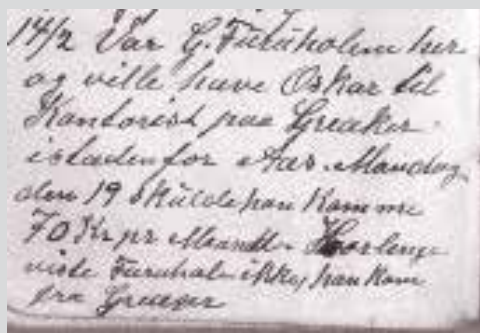 14/2 Var G. Furuholmen her
og ville have Oskar til
Kontorist paa Greaker
istedenfor Aas. Mandag
den 19 skulde han komme
70 Kr pr Maaned. Hvorlenge
viste Furuhol. ikke, han kom
fra Greaker